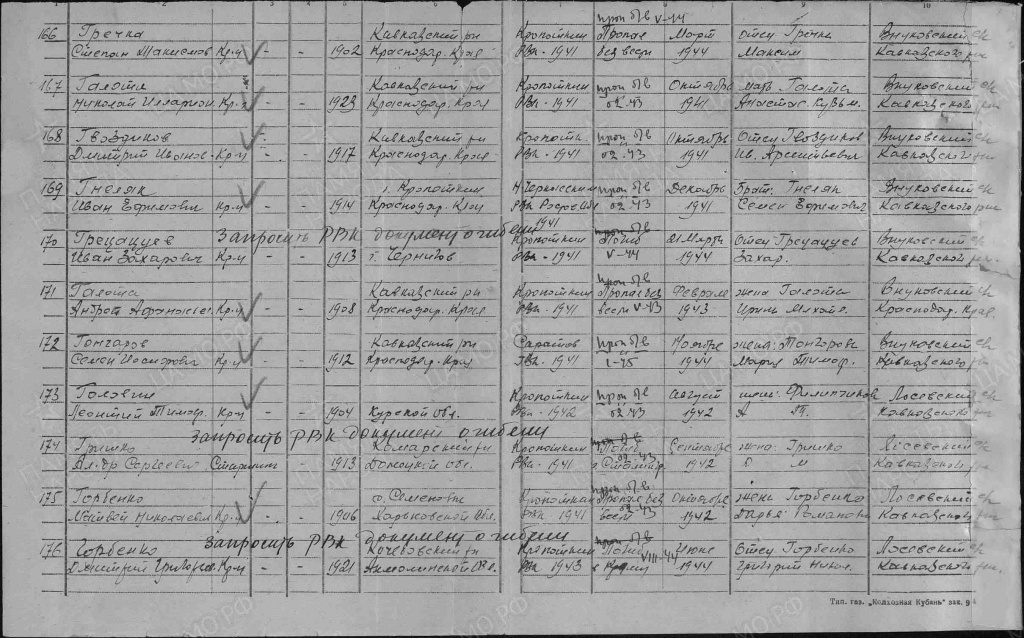 1 2 3 4 5 6 7 8 9 10
проп б/в V-44
166 Гречка Кавказский рн Кропоткин Пропал Март отец Гречка Внуковский с/с
Степан Максимов Кр-ц - - 1902 Краснодар. Края РВК - 1941 без вести 1944 Максим Кавказского рн
167 Галота Кавказский рн Кропоткин проп б/в Октябрь мать Галота Внуковский с/с
Николай Илларион Кр-ц - - 1923 Краснодар. Края РВК - 1941 02.43 1941 Анастас. Кузьм. Кавказского рн
168 Гвоздиков Кавказский рн Кропотк. проп б/в Октябрь Отец Гвоздиков Внуковский с/с
Дмитрий Иванов. Кр-ц - - 1917 Краснодар. Края РВК - 1941 02.43 1941 Ив. Арсентьевич Кавказского рн
169 Гнеляк г. Кропоткин Н-Черкасским проп б/в Декабрь Брат: Гнеляк Внуковский с/с
Иван Ефимович Кр-ц - - 1914 Краснодар. Края РВК Рос. обл 02.43 1941 Семен Ефимович Кавказского рн
Запросить РВК документ о гибели 1941
170 Грецацуев Кропоткин Погиб 21 Марта Отец Грецацуев Внуковский с/с
Иван Захарович Кр-ц - - 1913 г. Чернигов РВК - 1941 V-44 Захар. Кавказской рн.
проп б/в
171 Галота Кавказский рн Кропоткин Пропал без Февраль жена Галота Внуковский с/с
Андрей Афанасьев Кр-ц - - 1908 Краснодар. Края РВК - 1941 вести V-43 1943 Ирина Михайл. Краснодар. Края.
172 Гончаров Кавказский рн Саратов проп б/в Ноябрь жена: Гончарова Внуковский с/с
Семен Кр-ц - - 1912 Краснодар. Края РВК - 1941 1-45 1944 Мария Тимоф. Кавказского рн
173 Головин Кропоткин проп б/в Август жена: Филипчикова Лосевский с/с
Леонтий Тимоф. Кр-ц - - 1904 Курской обл. РВК - 1942 02.43 1942 А Т. Кавказского рн
Запросить РВК документ о гибели
174 Гришко Комарский рн Кропоткин проп б/в Погиб Сентябрь жена: Гришко Лосевский с/с
Ал-др Сергеевич Старшин - - 1913 Донецкий обл. РВК - 1941 02.43 1942 О М Кавказской рн
проп б/в
175 Горбенко с. Семеновка Кропоткин Пропал без Октябрь жена Горбенко Лосевский с/с
Матвей Николаевич Кр-ц - - 1906 Харьковской обл. РВК - 1941 вести 02.43 1942 Дарья Романовн Кавказского
Запросить РВК документ о гибели проп б/в
176 Горбенко рн Кропоткин Погиб Июне Отец Горбенко Лосевский с/с
Дмитрий Григорьев Кр-ц - - 1921 Акмолинской обл. РВК 1943 VIII-44 1944 Григорий Никол. Кавказского рн.
Тип. газ. „Колхозная Кубань" зак. 9